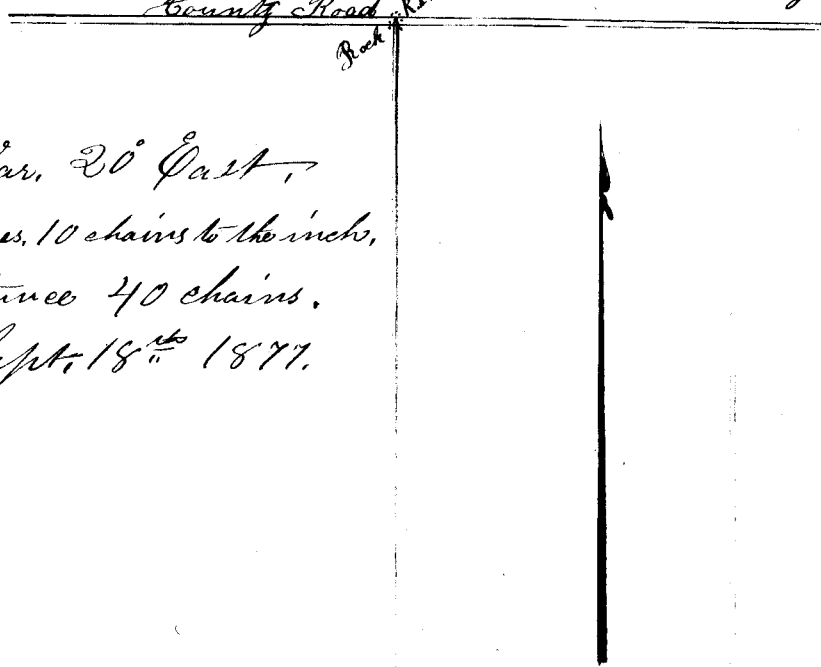 County Road
Rock
ar. 20° East.
es. 10 chains to the inch.
tance 40 chains.
ept. 18th 1877.